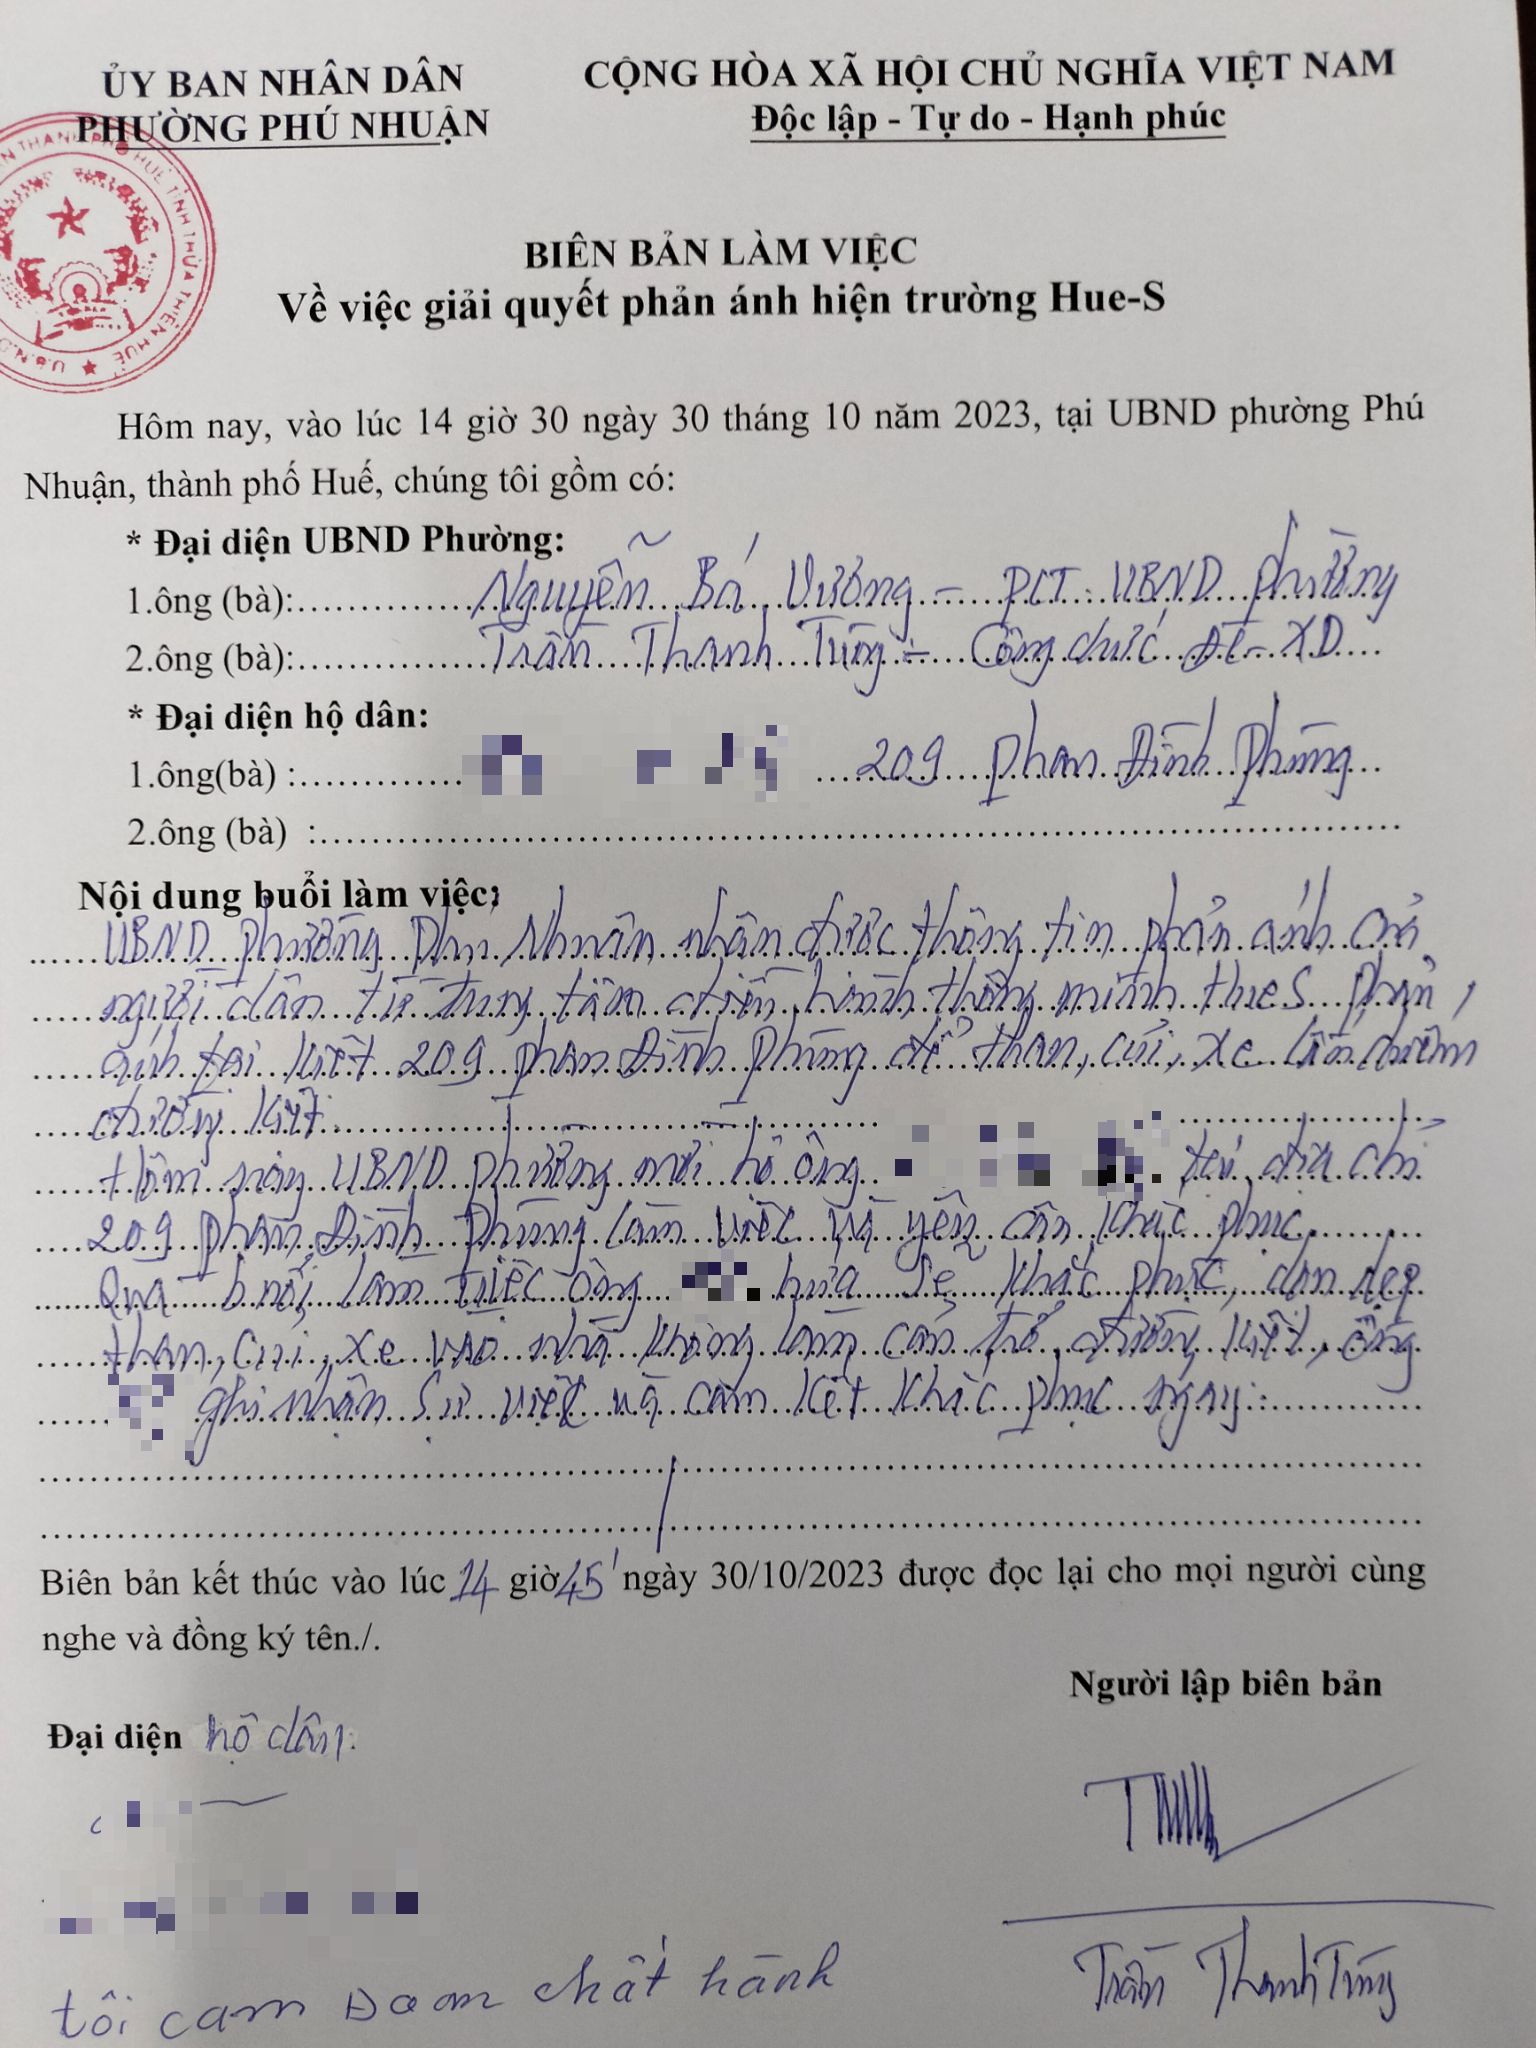 ỦY BAN NHÂN DÂN
PHƯỜNG PHÚ NHUẬN
CỘNG HÒA XÃ HỘI CHỦ NGHĨA VIỆT NAM
Độc lập - Tự do - Hạnh phúc
BIÊN BẢN LÀM VIỆC
Về việc giải quyết phản ánh hiện trường Hue-S
Hôm nay, vào lúc 14 giờ 30 ngày 30 tháng 10 năm 2023, tại UBND phường Phú
Nhuận, thành phố Huế, chúng tôi gồm có:
* Đại diện UBND Phường:
1.ông (bà): Nguyễn Bá Vương - PCT. UBND phường
2.ông (bà): Trần Thanh Tùng - Công chức ĐC-XD
* Đại diện hộ dân:
1.ông(bà) : 209 Phan Đình Phùng
2.ông (bà) :
Nội dung buổi làm việc:
UBND phường Phú Nhuận nhận được thông tin phản ánh của
người dân từ trung tâm điều hình thông minh HueS. Phản
ánh tại kiệt 209 Phan Đình Phùng để than, củi, xe lấn chiếm
đường kiệt.
Hôm nay UBND phường mời hộ ông tại địa chỉ
209 Phan Đình Phùng làm việc và yêu cầu khắc phục
Qua buổi làm việc ông hứa sẽ khắc phục, dọn dẹp
than, củi, xe vào nhà không làm cản trở đường kiệt, ông
ghi nhận sự việc và cam kết khắc phục ngay.
Biên bản kết thúc vào lúc 14 giờ 45' ngày 30/10/2023 được đọc lại cho mọi người cùng
nghe và đồng ký tên./.
Người lập biên bản
Đại diện hộ dân
Trần Thanh Tùng
tôi cam Đoan chất hành